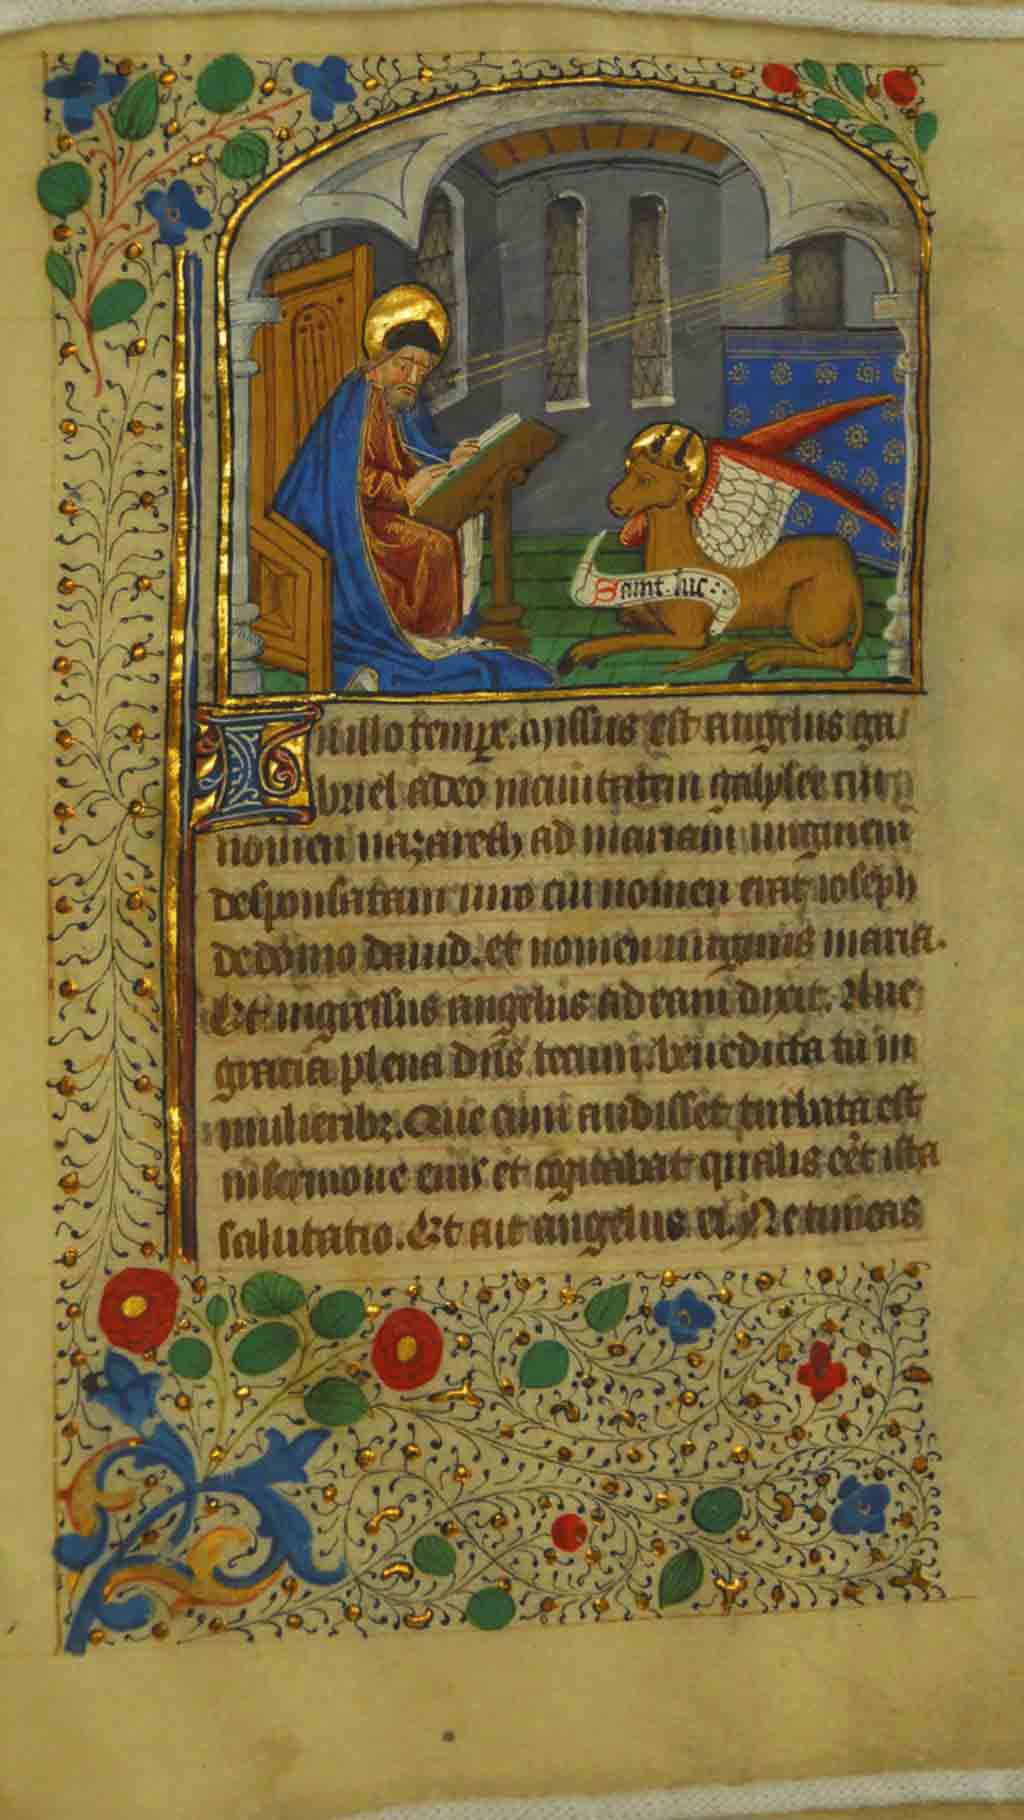 Saint luc
In illo tempore. missus est angelus ga
briel a deo in ciuitatem galylee cui
nomen nazareth ad mariam uirginem
desponsatam uiro cui nomen erat ioseph
de domo dauid. et nomen uirginis maria.
Et ingressus angelus ad eam dixit. Aue
gracia plena dns tecum. benedicta tu in
mulieribz. Que cum audisset turbata est
in sermone eius et cogitabat qualis eet ista
salutatio. Et ait angelus ei. Ne timeas